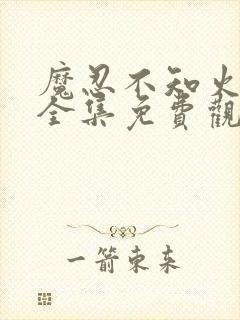 魔忍不知火
全集免費觀
一箭東来